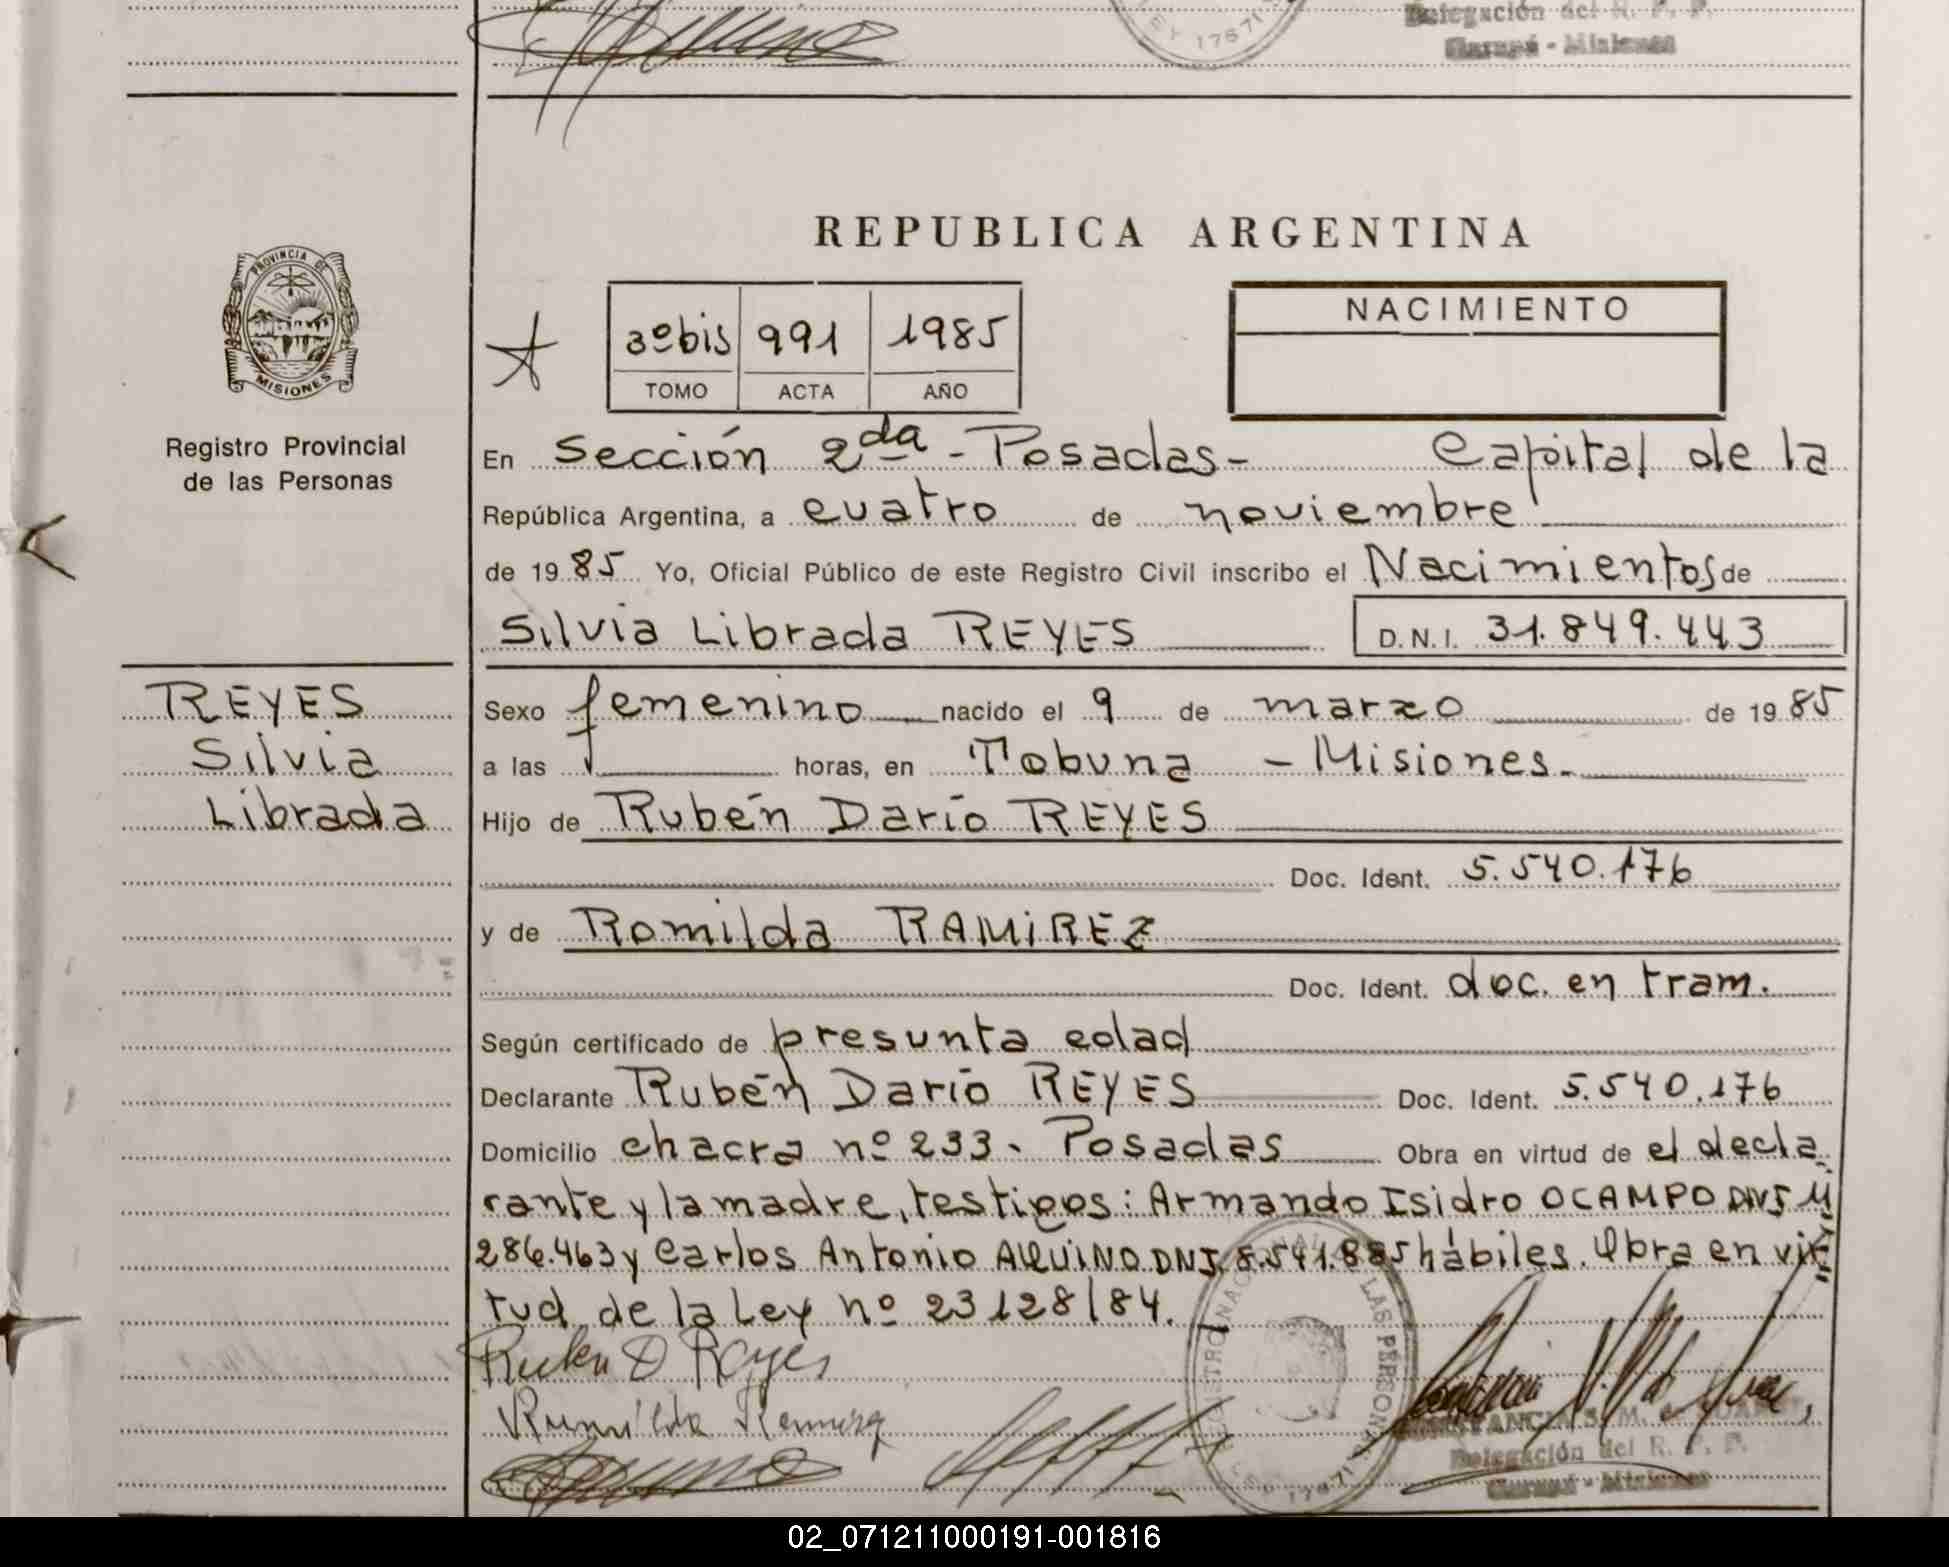 LEY 17671
Delegación del R. P. P.
Garupá - Misiones
REPUBLICA ARGENTINA
PROVINCIA DE
MISIONES
Registro Provincial
de las Personas
3º bis 991 1985
TOMO ACTA AÑO
NACIMIENTO
En Sección 2da - Posadas - Capital de la
República Argentina, a cuatro de noviembre
de 1985 Yo, Oficial Público de este Registro Civil inscribo el Nacimientos de
Silvia Librada REYES D.N.I. 31.849.443
REYES
Silvia
Librada
Sexo femenino nacido el 9 de marzo de 1985
a las horas, en Tobuna - Misiones.
Hijo de Rubén Darío REYES
Doc. Ident. 5.540.176
y de Romilda RAMIREZ
Doc. Ident. doc. en tram.
Según certificado de presunta edad
Declarante Rubén Darío REYES Doc. Ident. 5.540.176
Domicilio chacra nº 233. Posadas Obra en virtud de el decla
rante y la madre, testigos: Armando Isidro OCAMPO DNI 11
286.463 y Carlos Antonio AQUINO DNI. 8.541.885 hábiles. Obra en vir
tud de la Ley nº 23128/84.
Ruben D Reyes
Rumilda Ramirez
REGISTRO NACIONAL DE LAS PERSONAS
LEY 17671
CONSTANCIA S. M. de
Delegación del R. P. P.
Garupá - Misiones
02_071211000191-001816